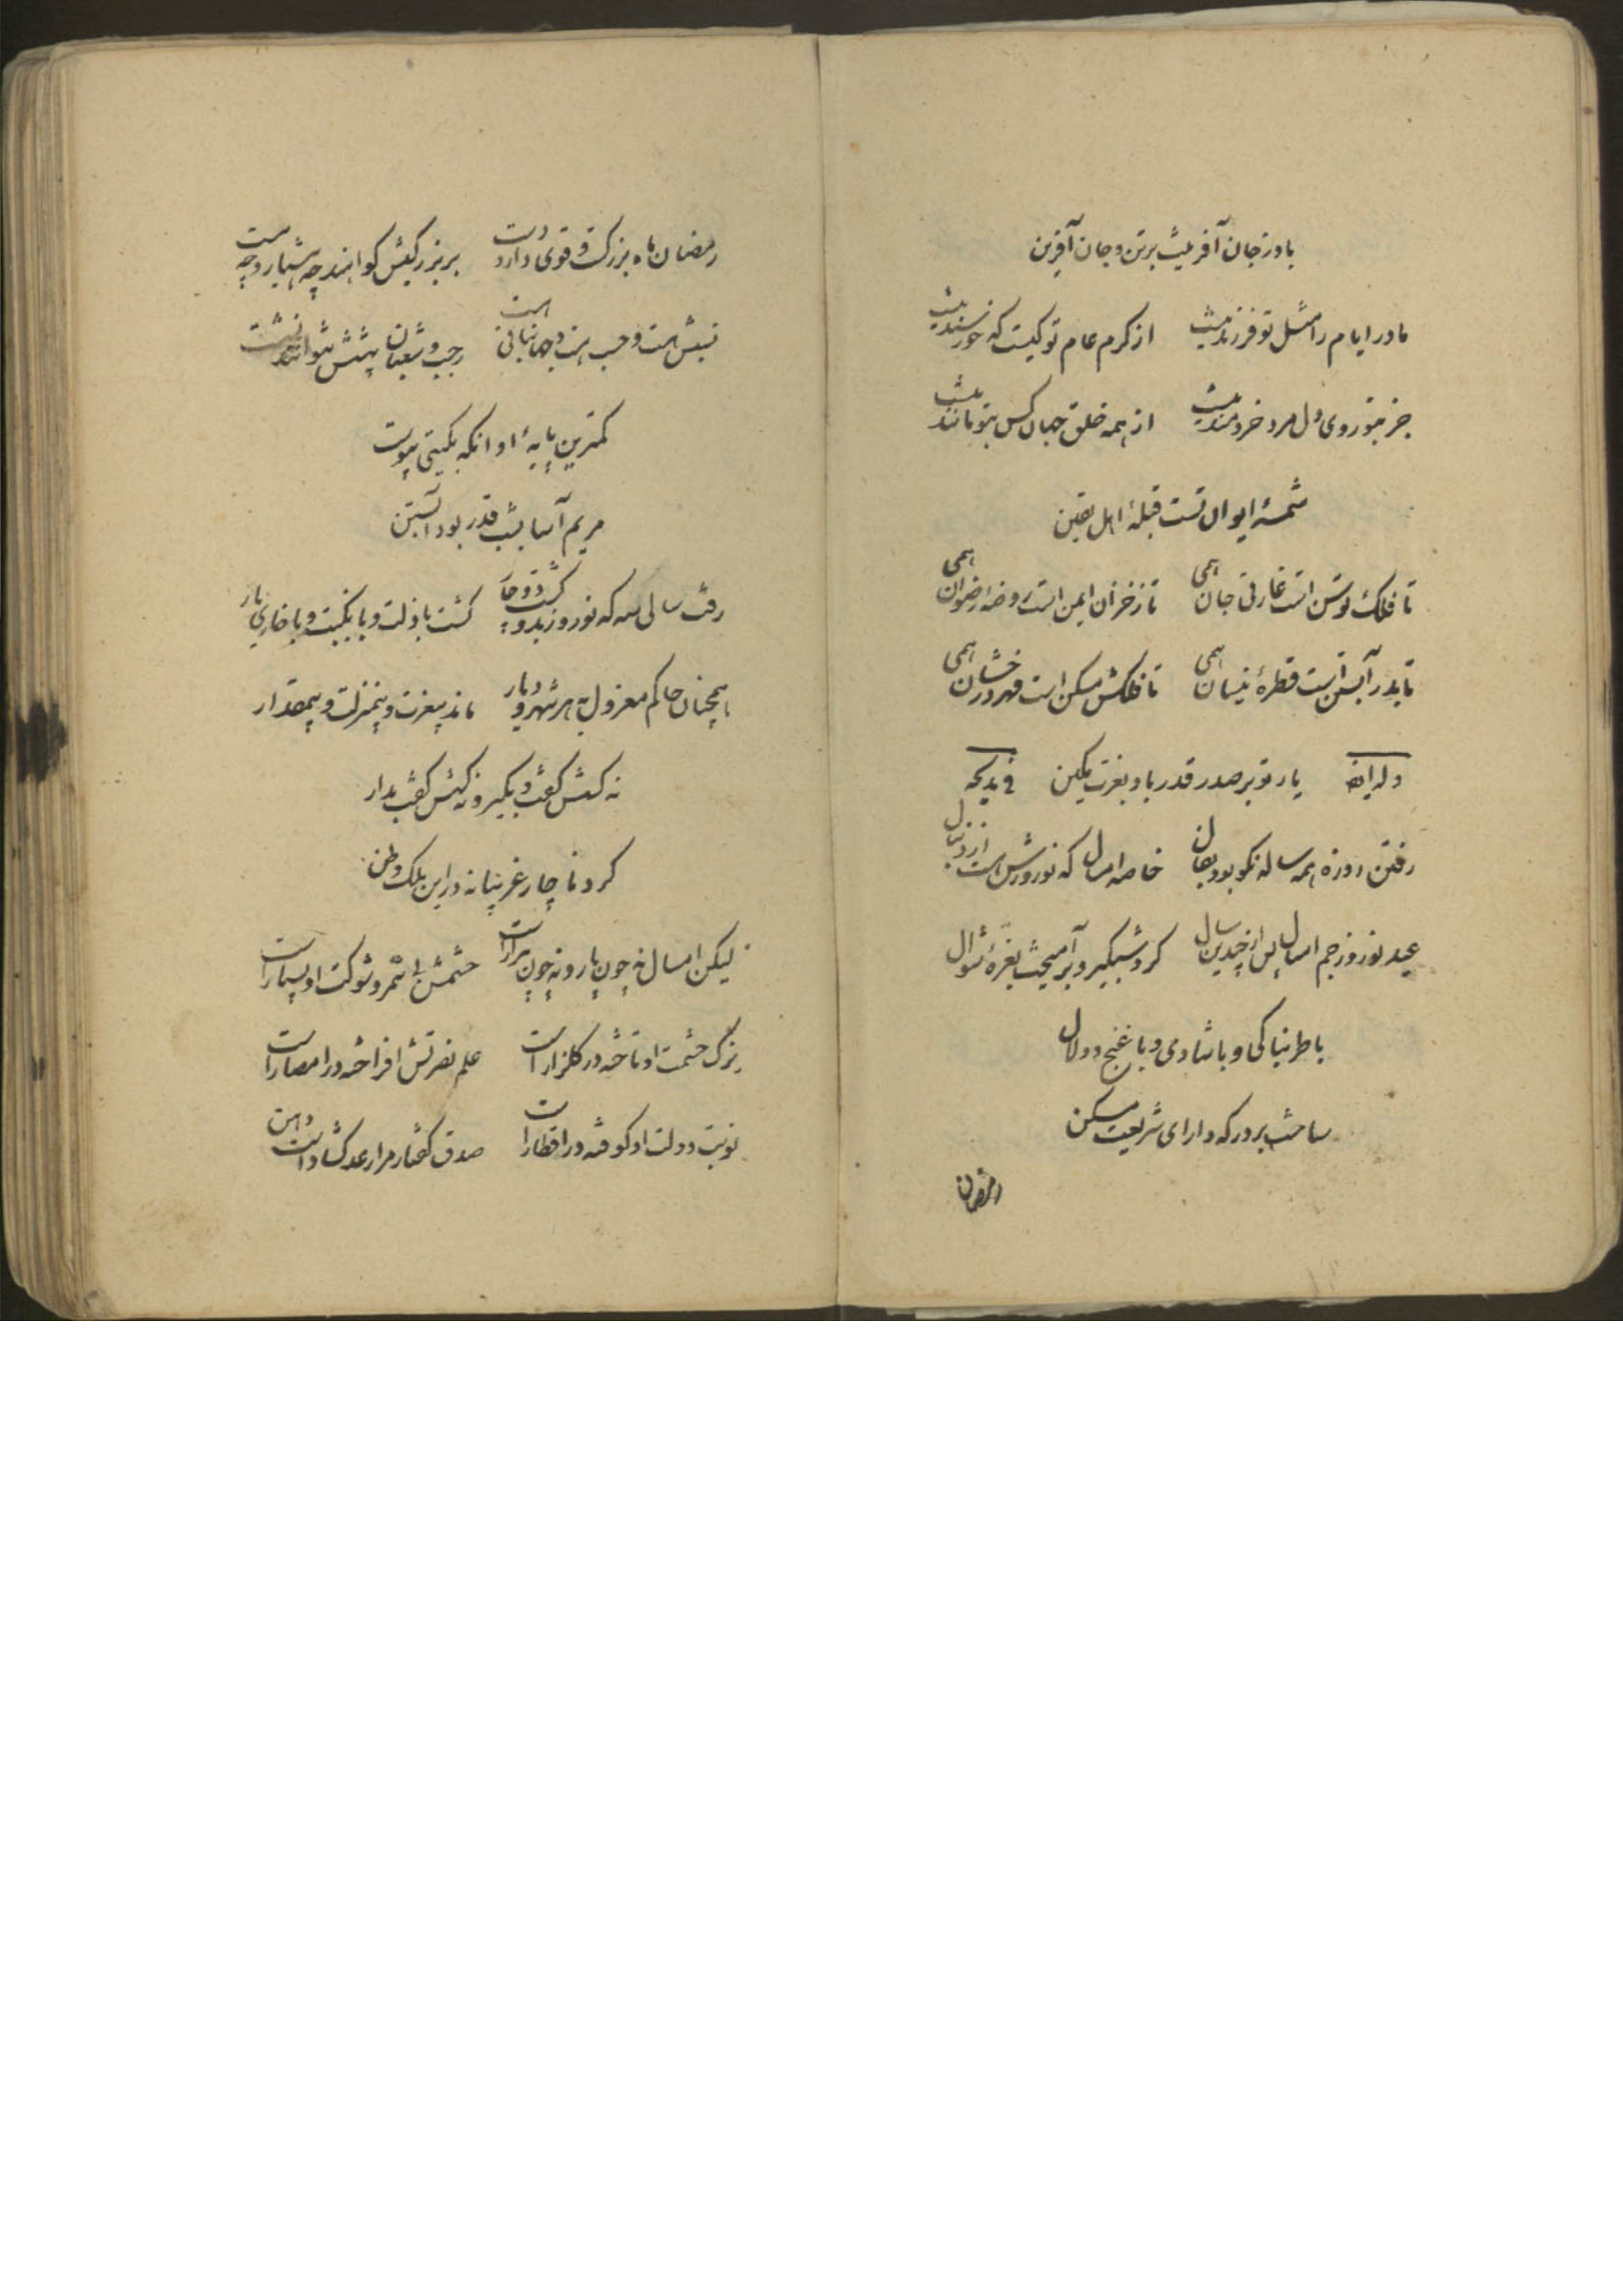 باد ز جان آفرینت بر تن و جان آفرین
مادر ایام را مثل تو فرزند نیست از کرم عام تو کیست که خورسند نیست
جز بتو روی دل مرد خردمند نیست از همه خلق جهان کس بتو مانند نیست
شمسهٔ ایوان تست قبلهٔ اهل یقین
تا فلک توسن است غارتی جان همی تا ز خزان ایمن است روضه رضوان همی
تا بدر آبستن است قطرهٔ نیسان همی تا فلکش مسکن است مهر درخشان همی
وله ایضا یار تو بر صدر قدر باد بعزت مکین فی مدیحه
رفتن روزه همه ساله نکو بود بفال خاصه امسال که نوروزش است از دنبال
عید نوروز جم امسال پس از چندین سال کرد شبگیر و برآمیخت بغرهٔ شوال
با طربناکی و با شادی و با غنج و دلال
ساخت بر درکه دارای شریعت مسکن
رمضان
رمضان ماه بزرکست و قوی دارد دست بر بزرکیش کواهند چه هشیار و چه مست
نسبش هست و حسب هست و جهانبانی هست رجب و شعبان پیشش نتوانند نشست
کمترین پایهٔ او آنکه بکیتی پیوست
مریم آسا بشب قدر بود آبستن
رفت سالی سه که نوروز بدو کشت دوچار کشت با ذلت و با نکبت و با خاری یار
همچنان حاکم معزول بهر شهر و دیار ماند بیعزت و بیمنزلت و بیمقدار
نه کسش کفت بکیر و نه کسش کفت بدار
کرد ناچار غریبانه در این ملک وطن
لیکن امسال نه چون پار و نه چون پیرار است حشمتش بی‌شمر و شوکت او بسیار است
یزک حشمت او تاخته در کلزار است علم نصرتش افراخته در امصار است
نوبت دولت او کوفته در اقطار است صدق کفتار مرا رعد کشاد است دهن